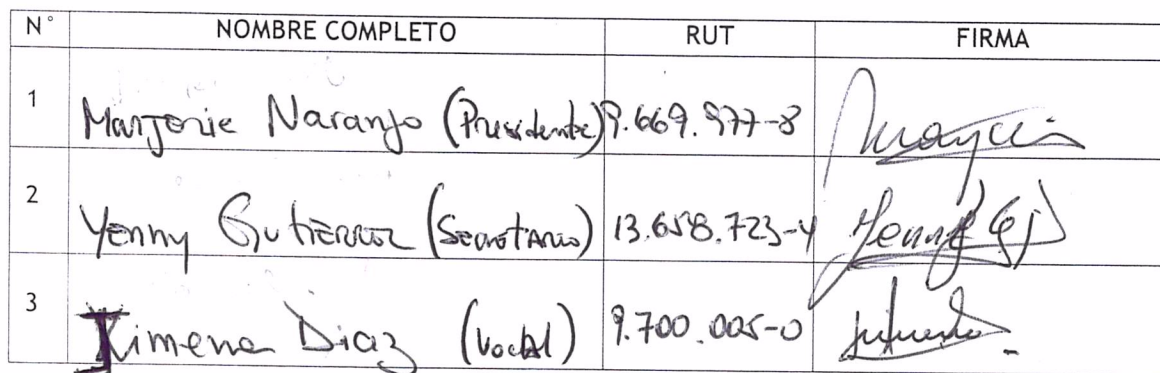 N° NOMBRE COMPLETO RUT FIRMA
1 Marjorie Naranjo (Presidente) 9.669.977-8
2 Yenny Gutierrez (Secretario) 13.658.723-4 Yenny G
3 Ximena Diaz (Vocal) 9.700.005-0